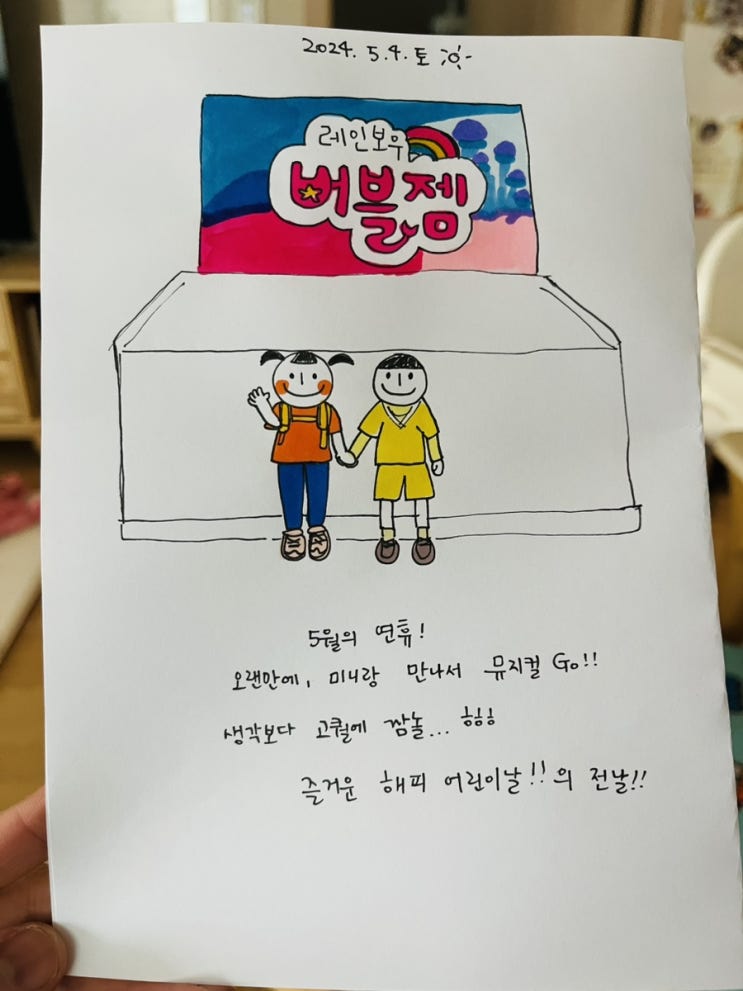 2024. 5.4. 토
레인보우
버블젬
5월의 연휴!
오랜만에, 미니랑 만나서 뮤지컬 Go!!
생각보다 고퀄에 깜놀... ㅎㅎㅎ
즐거운 해피 어린이날!!의 전날!!